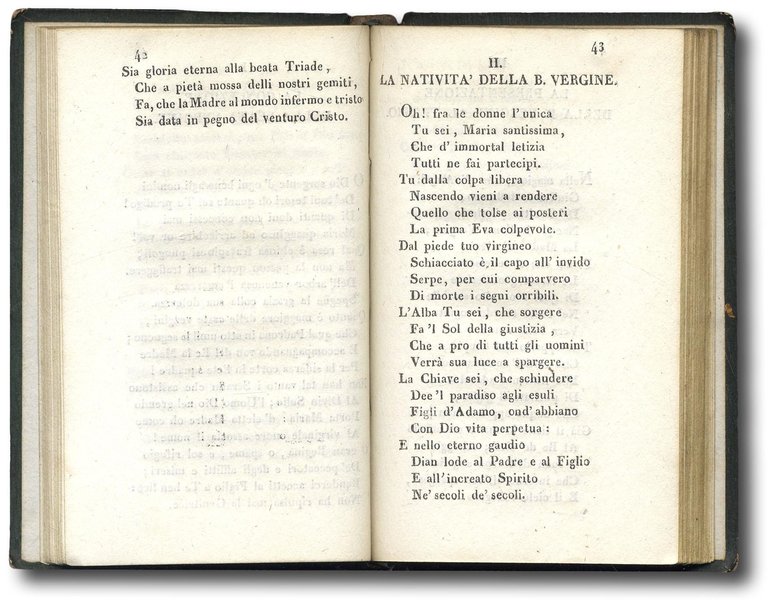 42
Sia gloria eterna alla beata Triade,
Che a pietà mossa delli nostri gemiti,
Fa, che la Madre al mondo infermo e tristo
Sia data in pegno del venturo Cristo.
43
II.
LA NATIVITA' DELLA B. VERGINE.
Oh! fra le donne l'unica
Tu sei, Maria santissima,
Che d' immortal letizia
Tutti ne fai partecipi.
Tu dalla colpa libera
Nascendo vieni a rendere
Quello che tolse ai posteri
La prima Eva colpevole.
Dal piede tuo virgineo
Schiacciato è il capo all' invido
Serpe, per cui comparvero
Di morte i segni orribili.
L'Alba Tu sei, che sorgere
Fa 'l Sol della giustizia,
Che a pro di tutti gli uomini
Verrà sua luce a spargere.
La Chiave sei, che schiudere
Dee 'l paradiso agli esuli
Figli d'Adamo, ond' abbiano
Con Dio vita perpetua:
E nello eterno gaudio
Dian lode al Padre e al Figlio
E all'increato Spirito
Ne' secoli de' secoli.